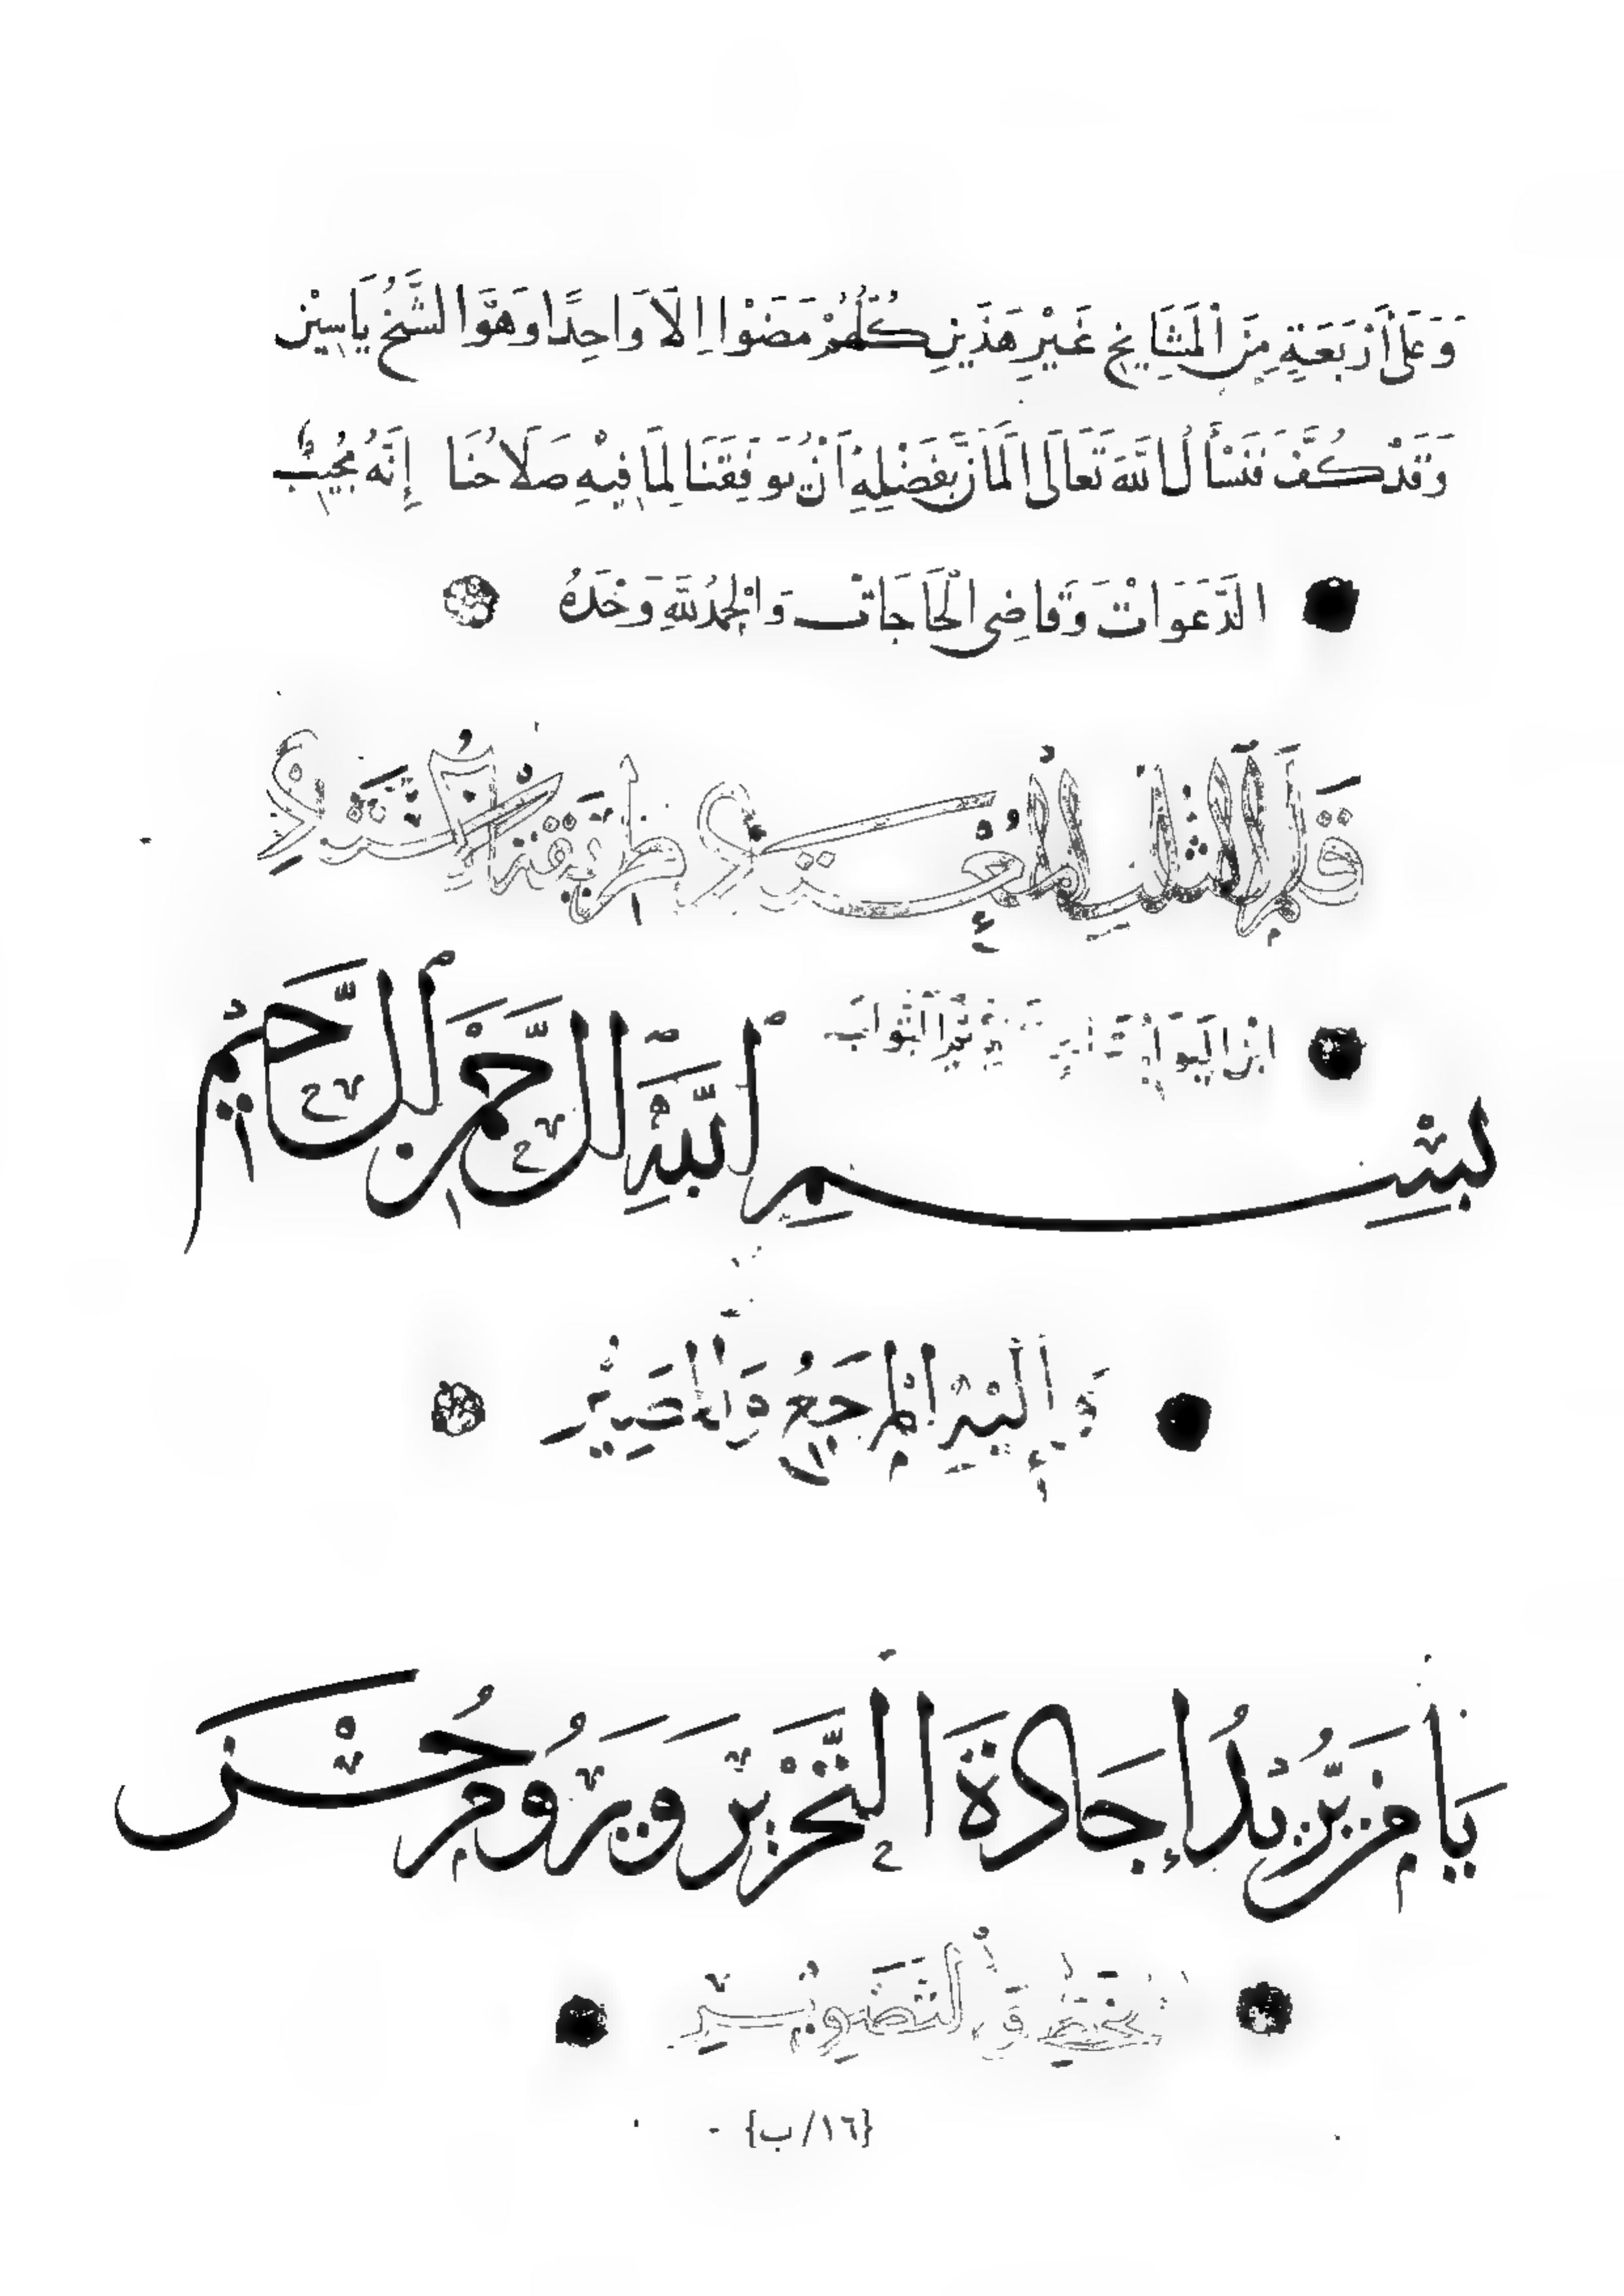 وَعَلَى أَرْبَعَةٍ مِنَ الْمَشَايِخِ غَيْرِ هَذَيْنِ كُلُّهُمْ مَضَوْا إِلَّا وَاحِدًا وَهُوَ الشَّيْخُ يَاسِيْن
وَقَدْ كُفَّ فَنَسْأَلُ اللهَ تَعَالَى الْمَانَّ بِفَضْلِهِ أَنْ يُوَفِّقَنَا لِمَا فِيهِ صَلَاحُنَا إِنَّهُ مُجِيبُ
الدَّعَوَاتِ وَقَاضِي الْحَاجَاتِ وَالْحَمْدُ لِلَّهِ وَحْدَهُ
قَلَمُ الثُّلُثِ الْمُعْتَادِ طَرِيقَةُ
ابْنِ الْبَوَّابِ
بِسْمِ اللهِ الرَّحْمَنِ الرَّحِيمِ
وَإِلَيْهِ الْمَرْجِعُ وَالْمَصِيْرُ
يَا مَنْ يُرِيدُ إِجَادَةَ التَّحْرِيرِ وَيَرُومُ حُسْنَ
الخَطِّ وَالتَّصْوِيرِ
{١٦/ب}